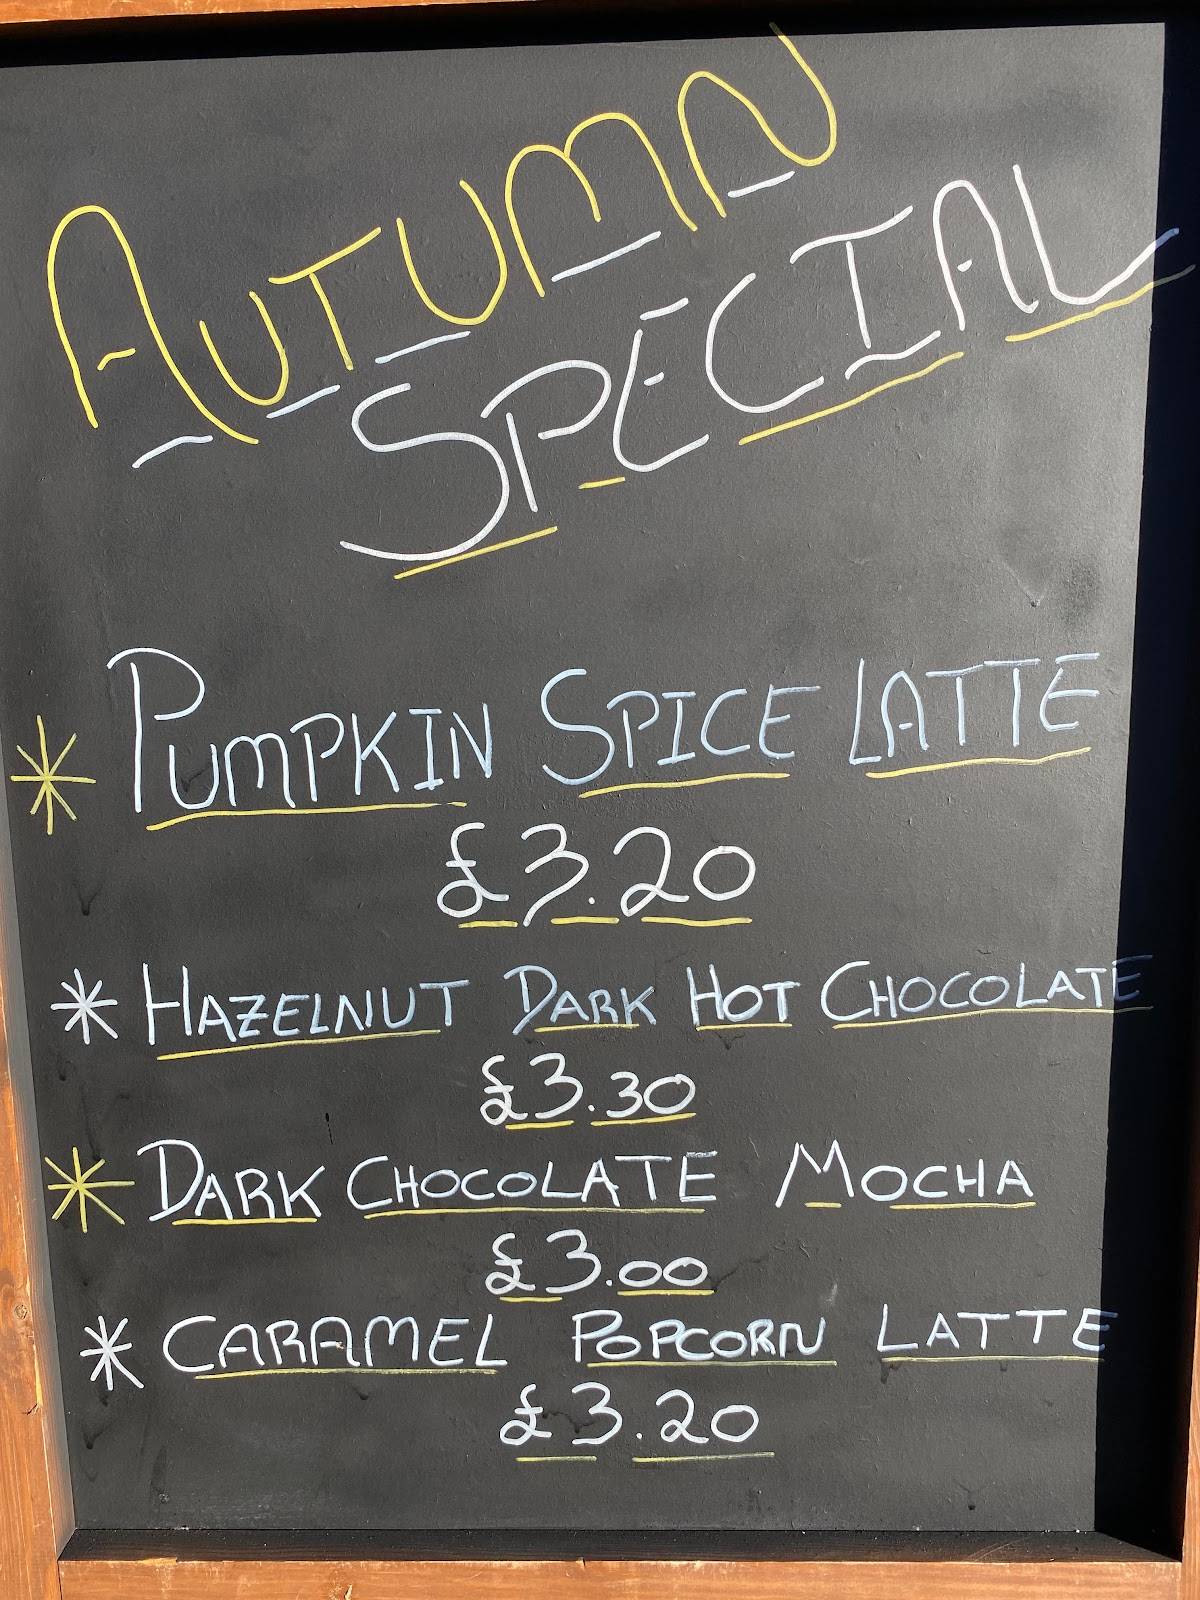 AUTUMN
SPECIAL
* PUMPKIN SPICE LATTE
£3.20
* HAZELNUT DARK HOT CHOCOLATE
£3.30
* DARK CHOCOLATE MOCHA
£3.00
* CARAMEL POPCORN LATTE
£3.20